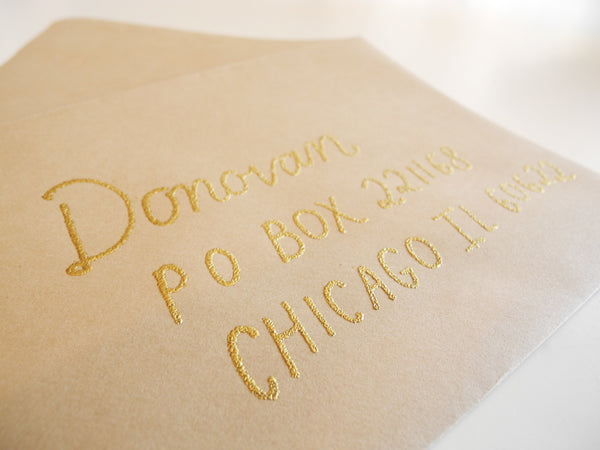 Donovan
PO BOX 221168
CHICAGO IL 60622